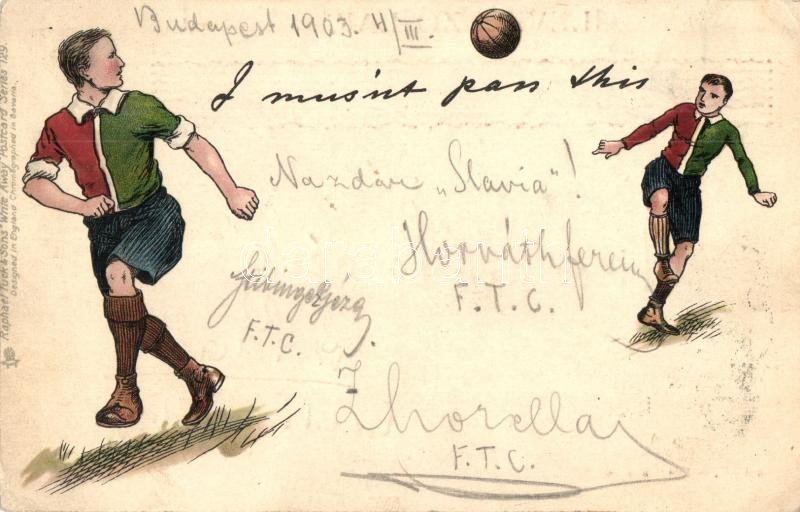 Budapest 1903. 4/III.
I mus'nt pass this
Nazdar „Slavia"!
Horváth Ferenc
F.T.C.
F.T.C.
F.T.C.
Raphael Tuck & Sons' "Write Away" Postcard Series 129.
Designed in England Chromographed in Bavaria.